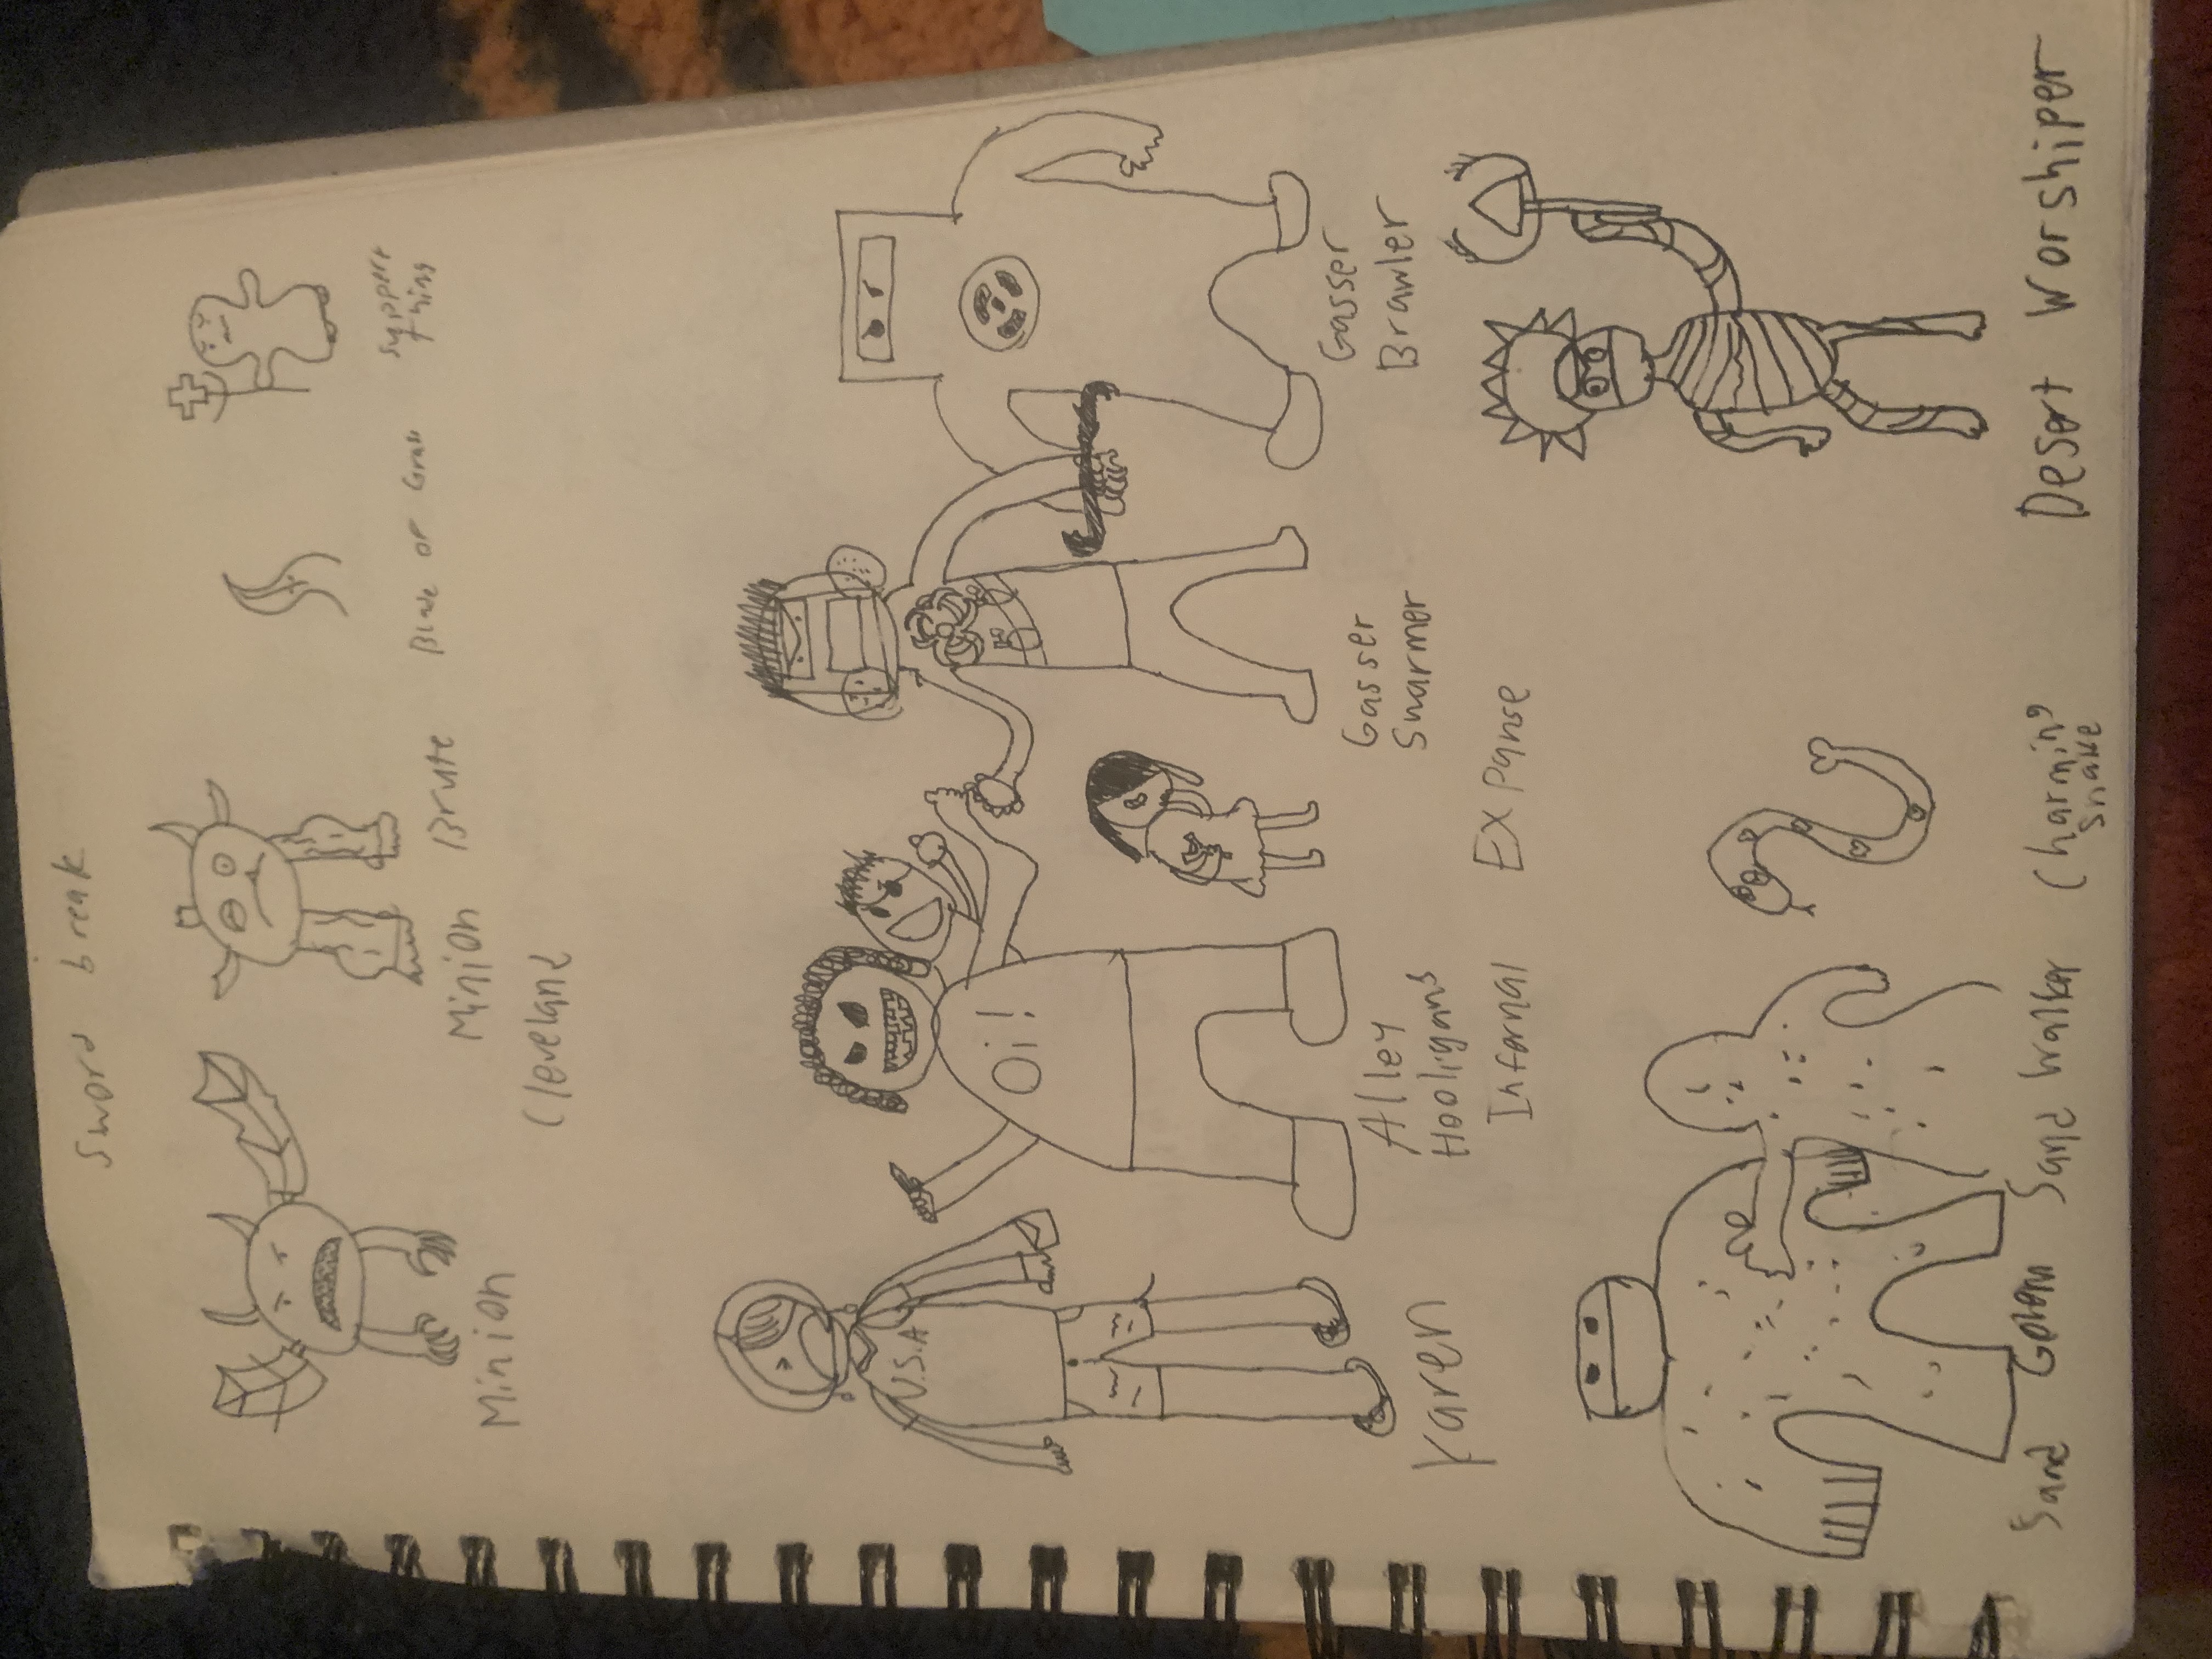 Sword break
Minion
Minion Brute
Blade of Grass
support
thing
Cleveland
U.S.A
Oi!
Karen
Alley
Hooligans
Gasser
Swarmer
Gasser
Brawler
Infernal Expanse
Sand Golem
Sand Walker
Charming
snake
Desert Worshiper